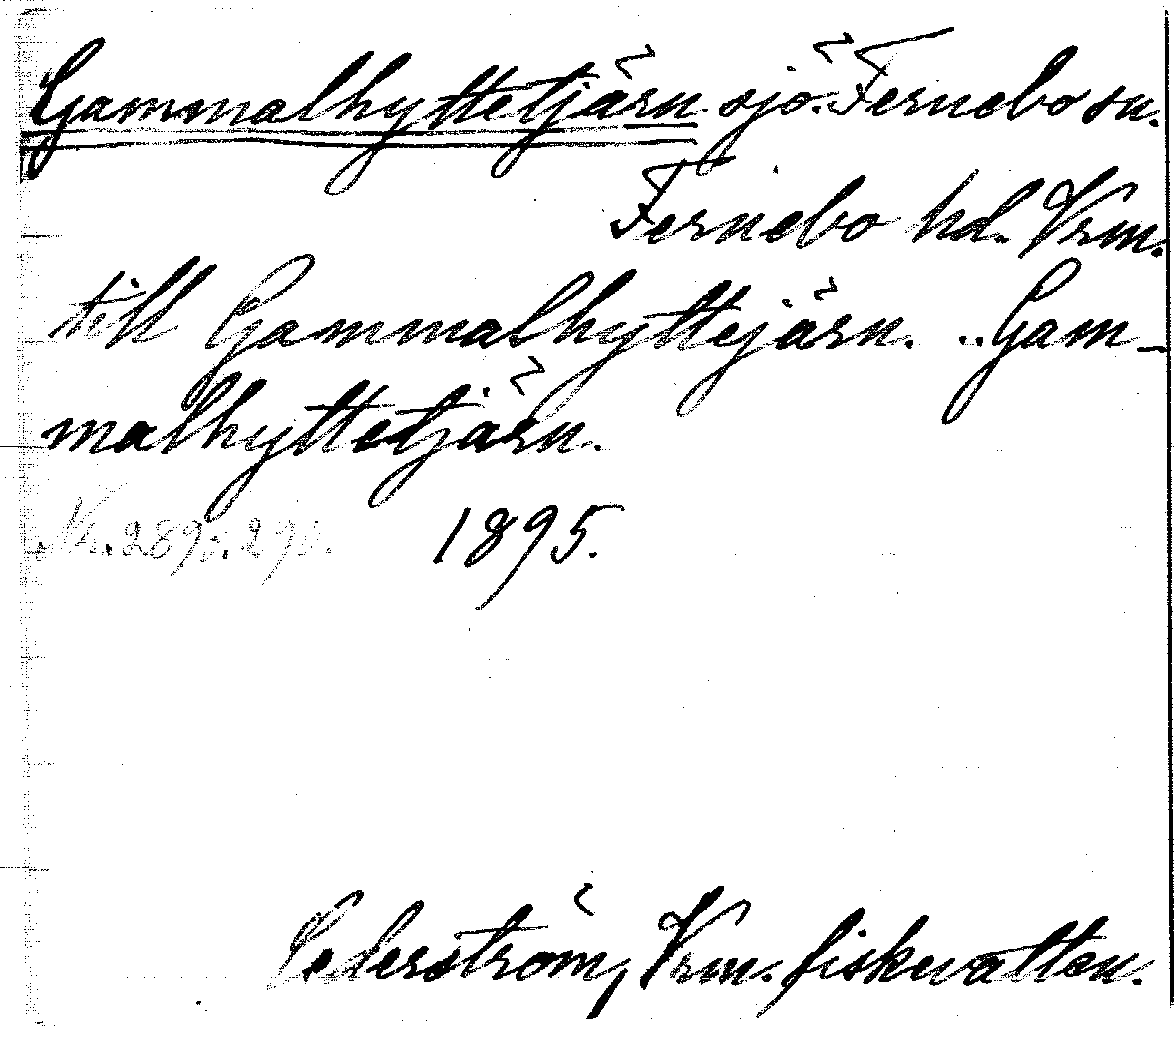 Gammalhyttetjärn sjö. Fernebo sn.
Fernebo hd. Vrm.
till Gammalhyttejärn. .. Gam-
malhyttetjärn.
1895.
Cederström, Vrm. fiskevatten.